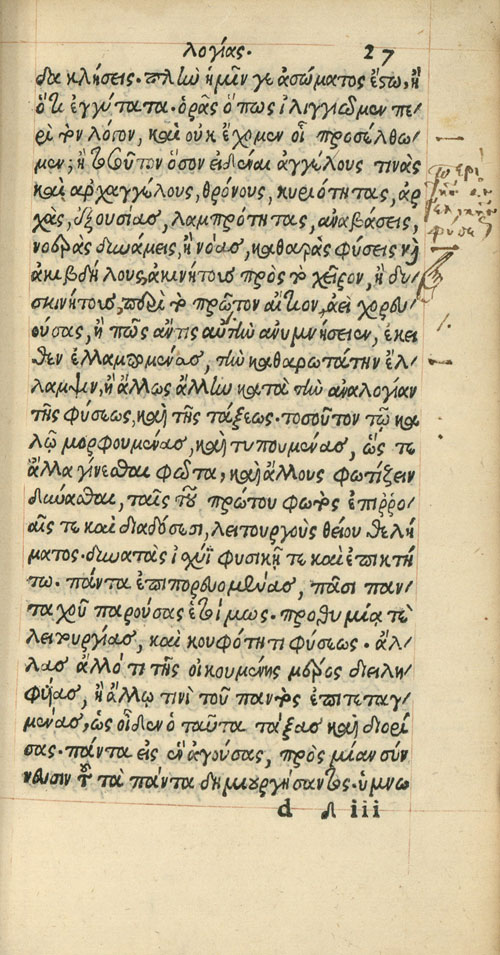 λογίας. 27
διακλήσεις. πλὴν ἡμῖν γε ἀσώματος ἔστω, ἢ
ὅτι ἐγγύτατα. ὁρᾷς ὅπως ἰλιγγιῶμεν πε/
ρὶ τὸν λόγον, καὶ οὐκ ἔχομεν οἷ προσέλθω/
μεν; ἢ τοσοῦτον ὅσον εἰδέναι ἀγγέλους τινὰς
καὶ ἀρχαγγέλους, θρόνους, κυριότητας, ἀρ
χὰς, ἐξουσίας, λαμπρότητας, ἀναβάσεις,
νοερὰς δυνάμεις, ἢ νόας, καθαρὰς φύσεις καὶ
ἀκιβδήλους, ἀκινήτους πρὸς τὸ χεῖρον, ἢ δυ/
σκινήτους, περὶ τὸ πρῶτον αἴτιον, ἀεὶ χορευ/
ούσας, ἢ πῶς ἄν τις αὐτὰς ἀνυμνήσειεν, ἐκεῖ
θεν ἐλλαμπομένας, τὴν καθαρωτάτην ἔλ/
λαμψιν, ἢ ἄλλως ἄλλην κατὰ τὴν ἀναλογίαν
τῆς φύσεως, καὶ τῆς τάξεως. τοσοῦτον τῷ κα
λῷ μορφουμένας, καὶ τυπουμένας, ὥς τε
ἄλλα γίνεσθαι φῶτα, καὶ ἄλλους φωτίζειν
δύνασθαι, ταῖς τοῦ πρώτου φωτὸς ἐπιῤῥο/
αῖς τε καὶ διαδόσεσι, λειτουργοὺς θείου θελή
ματος. δυνατὰς ἰσχύϊ φυσικῇ τε καὶ ἐπικτή
τῳ. πάντα ἐπιπορευομένας, πᾶσι παν/
ταχοῦ παρούσας ἑτοίμως. προθυμίᾳ τε
λειτουργίας, καὶ κουφότητι φύσεως. ἀλ/
λας ἄλλό τι τῆς οἰκουμένης μέρος διειλη/
φυίας, ἢ ἄλλῳ τινὶ τοῦ παντὸς ἐπιτεταγ/
μένας, ὡς οἶδεν ὁ ταῦτα τάξας καὶ διορί
σας. πάντα εἰς ἓν ἀγούσας, πρὸς μίαν σύν
νευσιν τοῦ τὰ πάντα δημιουργήσαντος. ὑμνω
d δ iii